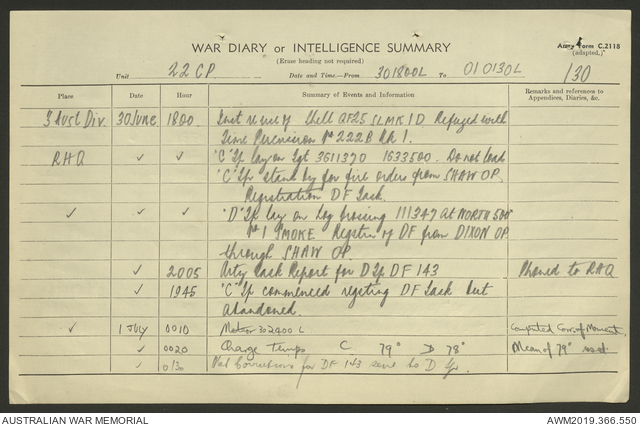 Army Form C.2118
(adapted.)
WAR DIARY or INTELLIGENCE SUMMARY
(Erase heading not required)
Unit 22 CP Date and Time—From 301800L To 010130L 130
Place Date Hour Summary of Events and Information Remarks and references to Appendices, Diaries, &c.
3 Aust Div. 30 June 1800 Inst re use of Shell QF25 SLMK1D Refuzed with
Time Percussion No 222B Mk 1.
RHQ ✓ ✓ "C" Tp lay on Tgt 3611370 1633500. Do not load
"C" Tp stand by for fire orders from SHAW OP.
Registration DF Task.
✓ ✓ ✓ "D" Tp lay on Log Crossing 111347 at NORTH 500
No 1 SMOKE Registn of DF from DIXON OP
through SHAW OP.
✓ 2005 Arty Task Report for D Tp DF 143 Phoned to RHQ
✓ 1945 "C" Tp commenced registing DF Task but
abandoned.
✓ 1 JULY 0010 Meteor 302400 L Computed Corr. of Moment
✓ 0020 Charge Temps C 79° D 78° Mean of 79° used.
✓ 0130 Met Corrections for DF 143 sent to D Tp
AUSTRALIAN WAR MEMORIAL AWM2019.366.550